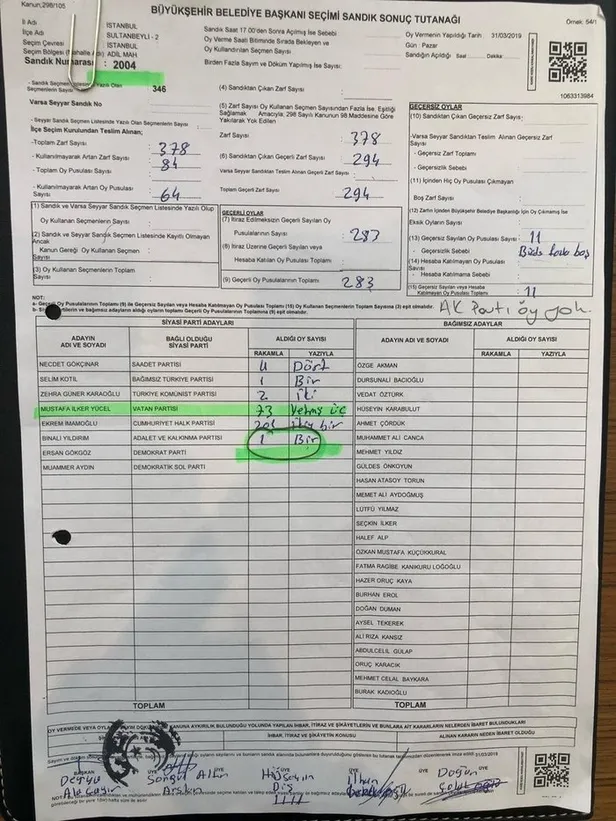 Kanun:298/105
BÜYÜKŞEHİR BELEDİYE BAŞKANI SEÇİMİ SANDIK SONUÇ TUTANAĞI
Örnek: 54/1
İli Adı : İSTANBUL
İlçe Adı : SULTANBEYLİ - 2
Seçim Çevresi : İSTANBUL
Seçim Bölgesi (Mahalle Adı) : ADİL MAH
Sandık Numarası : 2004
Sandık Saat 17.00'den Sonra Açılmış İse Sebebi
Oy Verme Saati Bitiminde Sırada Bekleyen ve
Oy Kullandırılan Seçmen Sayısı:
Birden Fazla Sayım ve Döküm Yapılmış İse Sayısı:
Oy Vermenin Yapıldığı Tarih 31/03/2019
Gün : Pazar
Sandığın Açıldığı Saat : Dakika:
1063313984
- Sandık Seçmen Listesinde Yazılı Olan
Seçmenlerin Sayısı 346
Varsa Seyyar Sandık No
- Seyyar Sandık Seçmen Listesinde Yazılı Olan Seçmenlerin Sayısı
İlçe Seçim Kurulundan Teslim Alınan;
-Toplam Zarf Sayısı : 378
- Kullanılmayarak Artan Zarf Sayısı : 84
- Toplam Oy Pusulası Sayısı
- Kullanılmayarak Artan Oy Pusulası Sayısı : 64
(4) Sandıktan Çıkan Zarf Sayısı:
(5) Zarf Sayısı Oy Kullanan Seçmen Sayısından Fazla İse, Eşitliği
Sağlamak Amacıyla; 298 Sayılı Kanun 98 Maddesine Göre
Yakılarak Yok Edilen
Zarf Sayısı : 378
(6) Sandıktan Çıkan Geçerli Zarf Sayısı : 294
Varsa Seyyar Sandıktan Teslim Alınan Geçerli Zarf Sayısı
Toplam Geçerli Zarf Sayısı : 294
GEÇERSİZ OYLAR
(10) Sandıktan Çıkan Geçersiz Zarf Sayısı:
-Varsa Seyyar Sandıktan Teslim Alınan Geçersiz Zarf
Sayısı
- Geçersiz Zarf Toplamı :
- Geçersizlik Sebebi :
(11) İçinden Hiç Oy Pusulası Çıkmayan
Boş Zarf Sayısı :
(12) Zarfın İçinden Büyükşehir Belediye Başkanlığı İçin Oy Çıkmamış İse
Eksik Oyların Sayısı:
(13) Geçersiz Sayılan Oy Pusulası Sayısı : 11
Geçersizlik Sebebi :
(14) Hesaba Katılmayan Oy Pusulası
Sayısı
- Hesaba Katılmama Sebebi :
(15) Geçersiz Sayılan veya Hesaba
Katılmayan Oy Pusulası Toplamı : 11
(1) Sandık ve Varsa Seyyar Sandık Seçmen Listesinde Yazılı Olup
Oy Kullanan Seçmenlerin Sayısı :
(2) Sandık ve Seyyar Sandık Seçmen Listesinde Kayıtlı Olmayan
Ancak
Kanun Gereği Oy Kullanan Seçmen
Sayısı
(3) Oy Kullanan Seçmenlerin Toplam
Sayısı
GEÇERLİ OYLAR
(7) İtiraz Edilmeksizin Geçerli Sayılan Oy
Pusulalarının Sayısı : 283
(8) İtiraz Üzerine Geçerli Sayılan veya
Hesaba Katılan Oy Pusulası Toplamı :
(9) Geçerli Oy Pusulalarının Toplamı : 283
AK Parti oy yok.
NOT:
SİYASİ PARTİ ADAYLARI
BAĞIMSIZ ADAYLAR
ADAYIN ADI VE SOYADI BAĞLI OLDUĞU SİYASİ PARTİ ALDIĞI OY SAYISI RAKAMLA YAZIYLA
ADAYIN ADI VE SOYADI ALDIĞI OY SAYISI RAKAMLA YAZIYLA
NECDET GÖKÇINAR SAADET PARTİSİ 4 Dört
SELİM KOTİL BAĞIMSIZ TÜRKİYE PARTİSİ 1 Bir
ZEHRA GÜNER KARAOĞLU TÜRKİYE KOMÜNİST PARTİSİ 2 İki
MUSTAFA İLKER YÜCEL VATAN PARTİSİ 73 Yetmiş üç
EKREM İMAMOĞLU CUMHURİYET HALK PARTİSİ bir
BİNALİ YILDIRIM ADALET VE KALKINMA PARTİSİ 1 Bir
ERSAN GÖKGÖZ DEMOKRAT PARTİ
MUAMMER AYDIN DEMOKRATİK SOL PARTİ
ÖZGE AKMAN
DURSUNALİ BACIOĞLU
VEDAT ÖZTÜRK
HÜSEYİN KARABULUT
AHMET ÇÖRDÜK
MUHAMMET ALİ CANCA
MEHMET YILDIZ
GÜLDES ÖNKOYUN
HASAN ATASOY TORUN
MEMET ALİ AYDOĞMUŞ
LÜTFÜ YILMAZ
SEÇKİN İLKER
HALEF ALP
ÖZKAN MUSTAFA KÜÇÜKKURAL
FATMA RAGİBE KANIKURU LOĞOĞLU
HAZER ORUÇ KAYA
BURHAN EROL
DOĞAN DUMAN
AYSEL TEKEREK
ALİ RIZA KANSIZ
ABDULCELİL GÜLAP
ORUÇ KARACIK
MEHMET CELAL BAYKARA
BURAK KADIOĞLU
TOPLAM
TOPLAM
İHBAR, İTİRAZ VE ŞİKAYETİN KONUSU
ALINAN KARARIN NEDEN İBARET OLDUĞU
BAŞKAN ÜYE ÜYE ÜYE ÜYE
Songül Altın Hüseyin İlhan Doğan